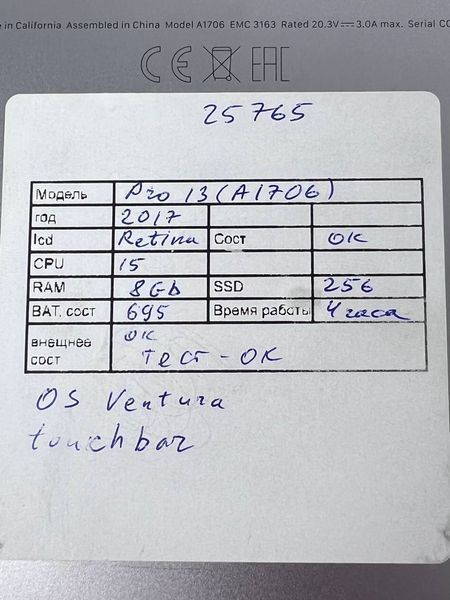 e in California Assembled in China Model A1706 EMC 3163 Rated 20.3V⎓3.0A max. Serial C0
CE EAC
25765
Модель Pro 13 (A1706)
год 2017
lcd Retina Сост OK
CPU i5
RAM 8Gb SSD 256
BAT. сост 695 Время работы 4 часа
внешнее OK
сост Тест - OK
OS Ventura
touchbar